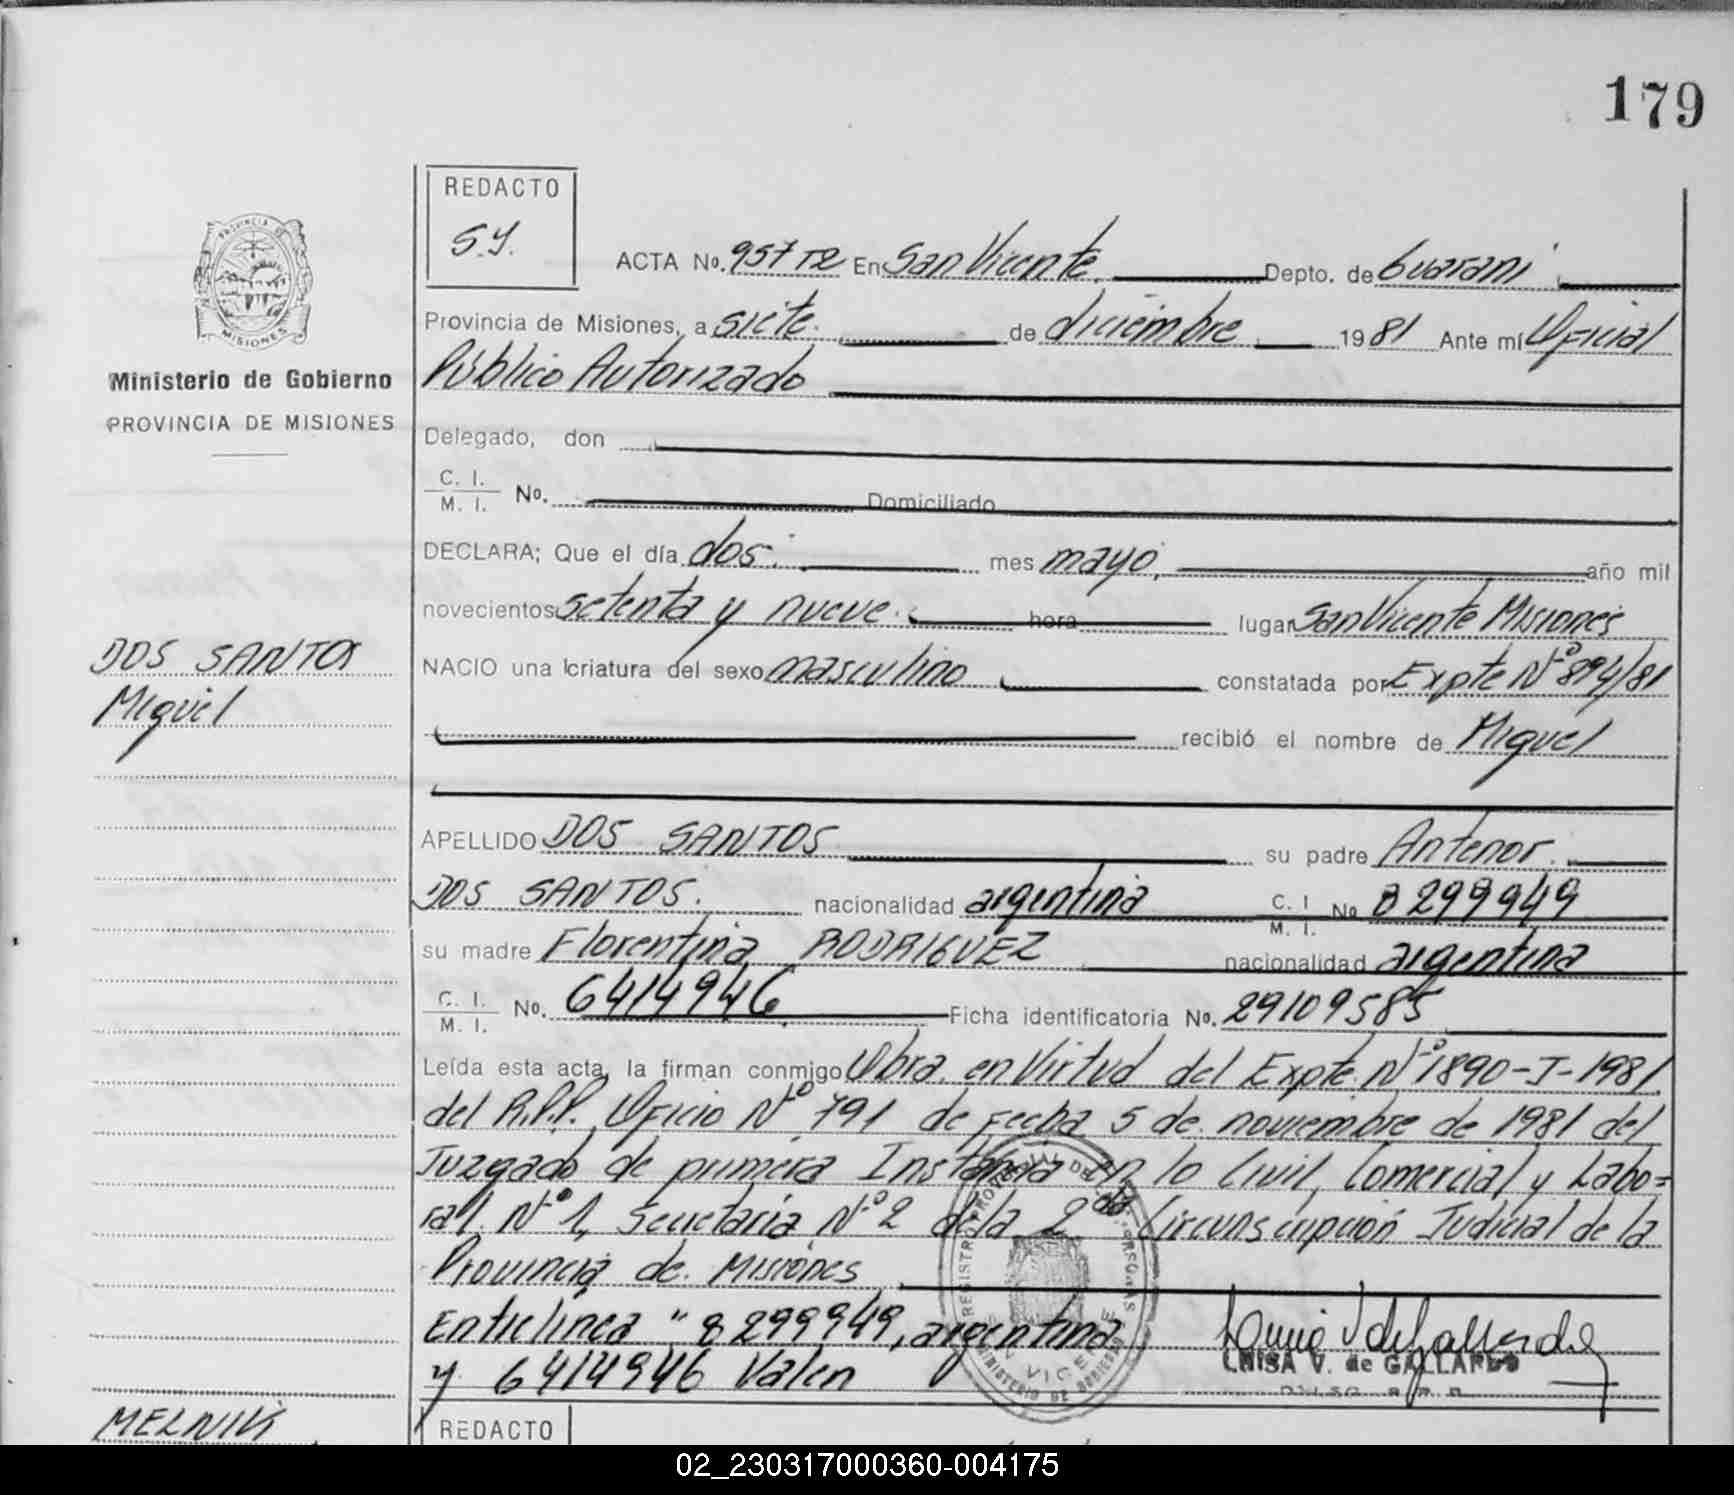 179
REDACTO
S.Y.
PROVINCIA DE
MISIONES
Ministerio de Gobierno
PROVINCIA DE MISIONES
ACTA No. 957 T2 En San Vicente. Depto. de Guarani
Provincia de Misiones, a siete. de diciembre 1981 Ante mí Oficial
Público Autorizado
Delegado, don
C. I.
M. I. No. Domiciliado
DECLARA; Que el día dos. mes mayo, año mil
novecientos setenta y nueve. hora lugar San Vicente Misiones
DOS SANTOS
Miguel
NACIO una criatura del sexo masculino constatada por Expte Nº 894/81
recibió el nombre de Miguel
APELLIDO DOS SANTOS su padre Antenor.
DOS SANTOS. nacionalidad argentina C. I. M. I. No 8299949
su madre Florentina RODRIGUEZ nacionalidad argentina
C. I.
M. I. No. 6414946 Ficha identificatoria No. 29109585
Leída esta acta, la firman conmigo Obra en Virtud del Expte. Nº 1890-J-1981
del R.P.P. Oficio Nº 791 de fecha 5 de noviembre de 1981 del
Juzgado de primera Instancia en lo Civil, Comercial y Labo=
ral Nº 1, Secretaria Nº 2 de la 2da Circunscripción Judicial de la
Provincia de Misiones
Entrelinea "8299949, argentina
y 6414946 Valen
LUISA V. de GALLARDO
MELNIK
REDACTO
02_230317000360-004175